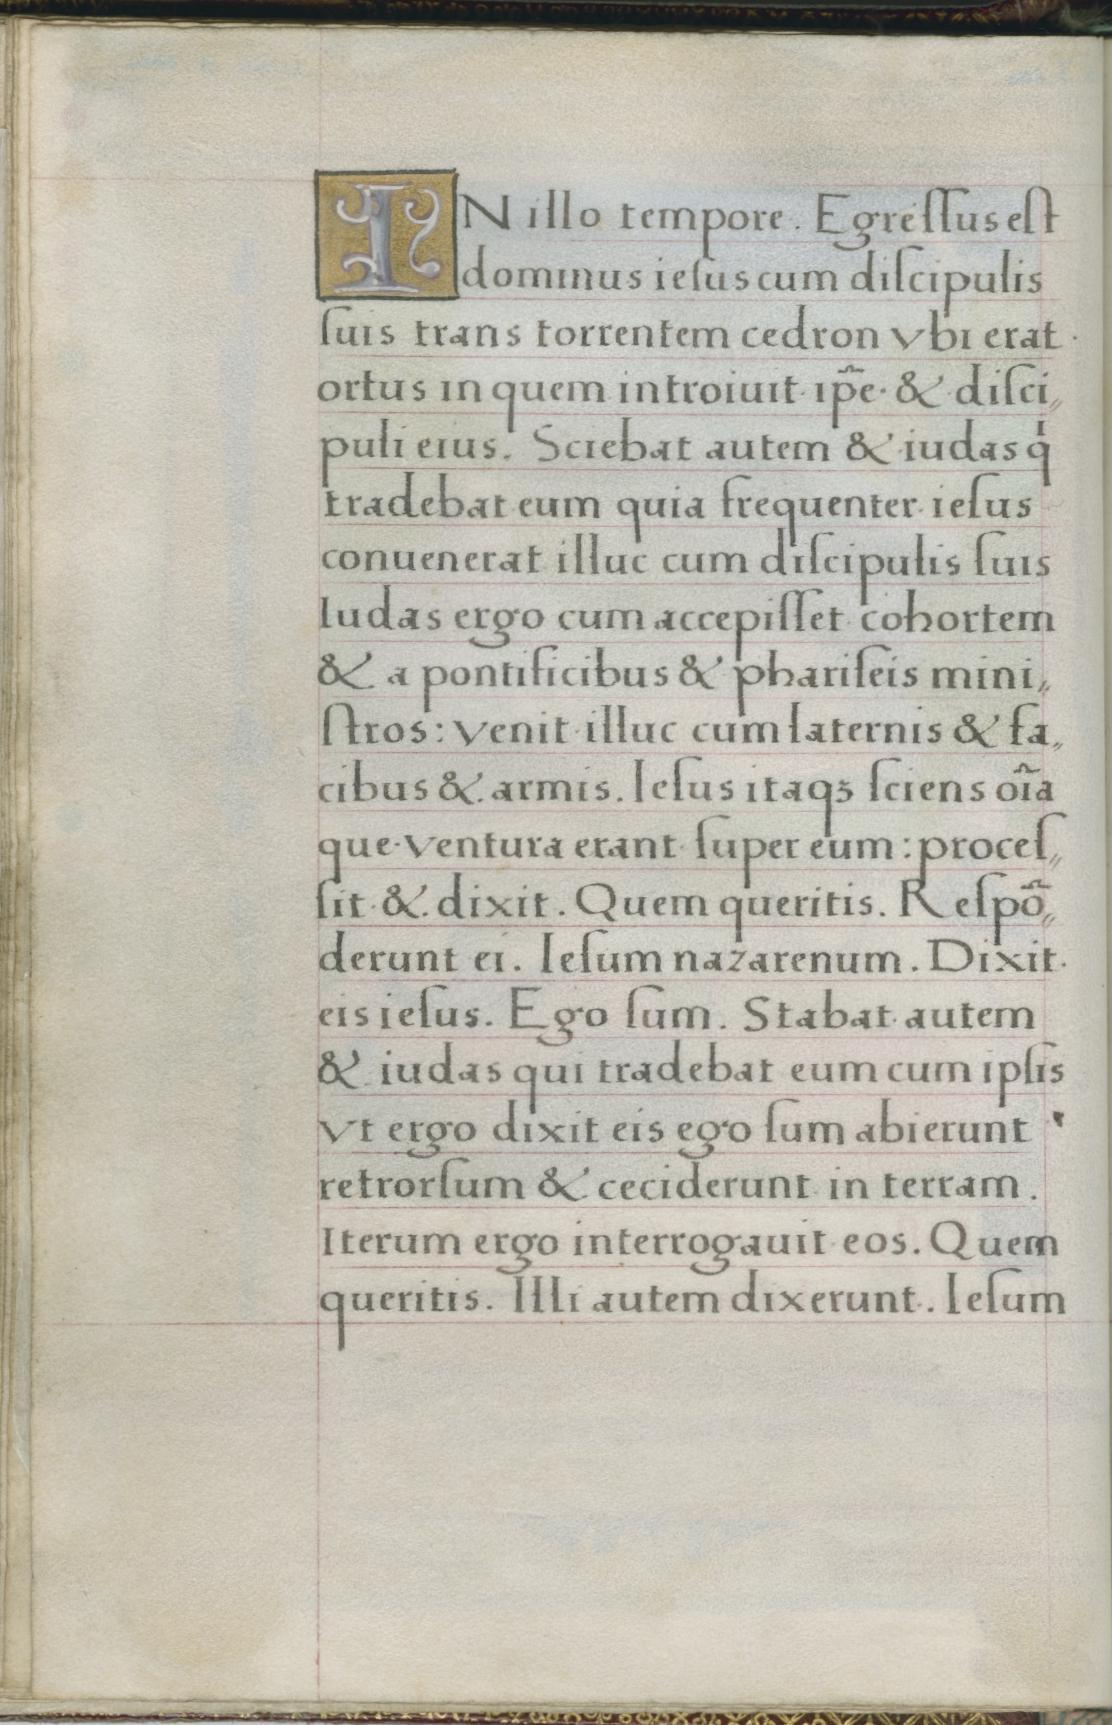 IN illo tempore. Egreſſus eſt
dominus ieſus cum diſcipulis
ſuis trans torrentem cedron vbi erat
ortus in quem introiuit ip̃e & diſci〃
puli eius. Sciebat autem & iudas qͥ
tradebat eum quia frequenter ieſus
conuenerat illuc cum diſcipulis ſuis
Iudas ergo cum accepiſſet cohortem
& a pontificibus & phariſeis mini〃
ſtros: venit illuc cum laternis & fa〃
cibus & armis. Ieſus itaqꝫ ſciens oĩa
que ventura erant ſuper eum: proceſ〃
ſit & dixit. Quem queritis. Reſpõ〃
derunt ei. Ieſum nazarenum. Dixit
eis ieſus. Ego ſum. Stabat autem
& iudas qui tradebat eum cum ipſis
vt ergo dixit eis ego ſum abierunt
retrorſum & ceciderunt in terram.
Iterum ergo interrogauit eos. Quem
queritis. Illi autem dixerunt. Ieſum